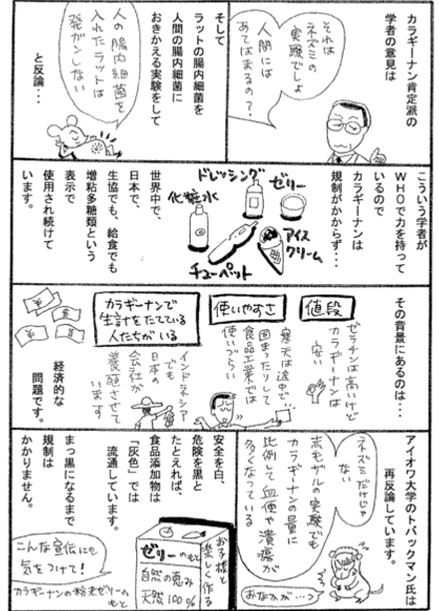 カラギーナン肯定派の
学者の意見は
それは
ネズミの
実験でしょ
人間には
あてはまるの?
そして
ラットの腸内細菌を
人間の腸内細菌に
おきかえる実験をして
人の腸内細菌を
入れたラットは
発ガンしない
と反論・・
こういう学者が
WHOで力を持って
いるので
カラギーナンは
規制がかからず・・・
ドレッシング
ゼリー
化粧水
アイス
クリーム
チューペット
世界中で、
日本で、
生協でも、給食でも
増粘多糖類という
表示で
使用され続けて
います。
その背景にあるのは・・・
値段
ゼラチンは高いけど
カラギーナンは
安い
使いやすさ
寒天は途中で
固まったりして
食品工業では
使いづらい
カラギーナンで
生計をたてている
人たちがいる
インドネシア
でも
日本の
会社が
養殖させて
います
経済的な
問題です。
アイオワ大学のトバックマン氏は
再反論しています。
ネズミだけじゃ
ない
モルモットやサルの実験でも
カラギーナンの量に
比例して血便や潰瘍が
多くなっている
おなかが…っ
安全を白、
危険を黒と
たとえれば、
食品添加物は
「灰色」では
流通しています。
まっ黒になるまで
規制は
かかりません。
お子様と
楽しく作る
ゼリーのもと
自然の恵み
天然100%
こんな宣伝にも
気をつけて!
カラギーナンの粉末ゼリーの
もと